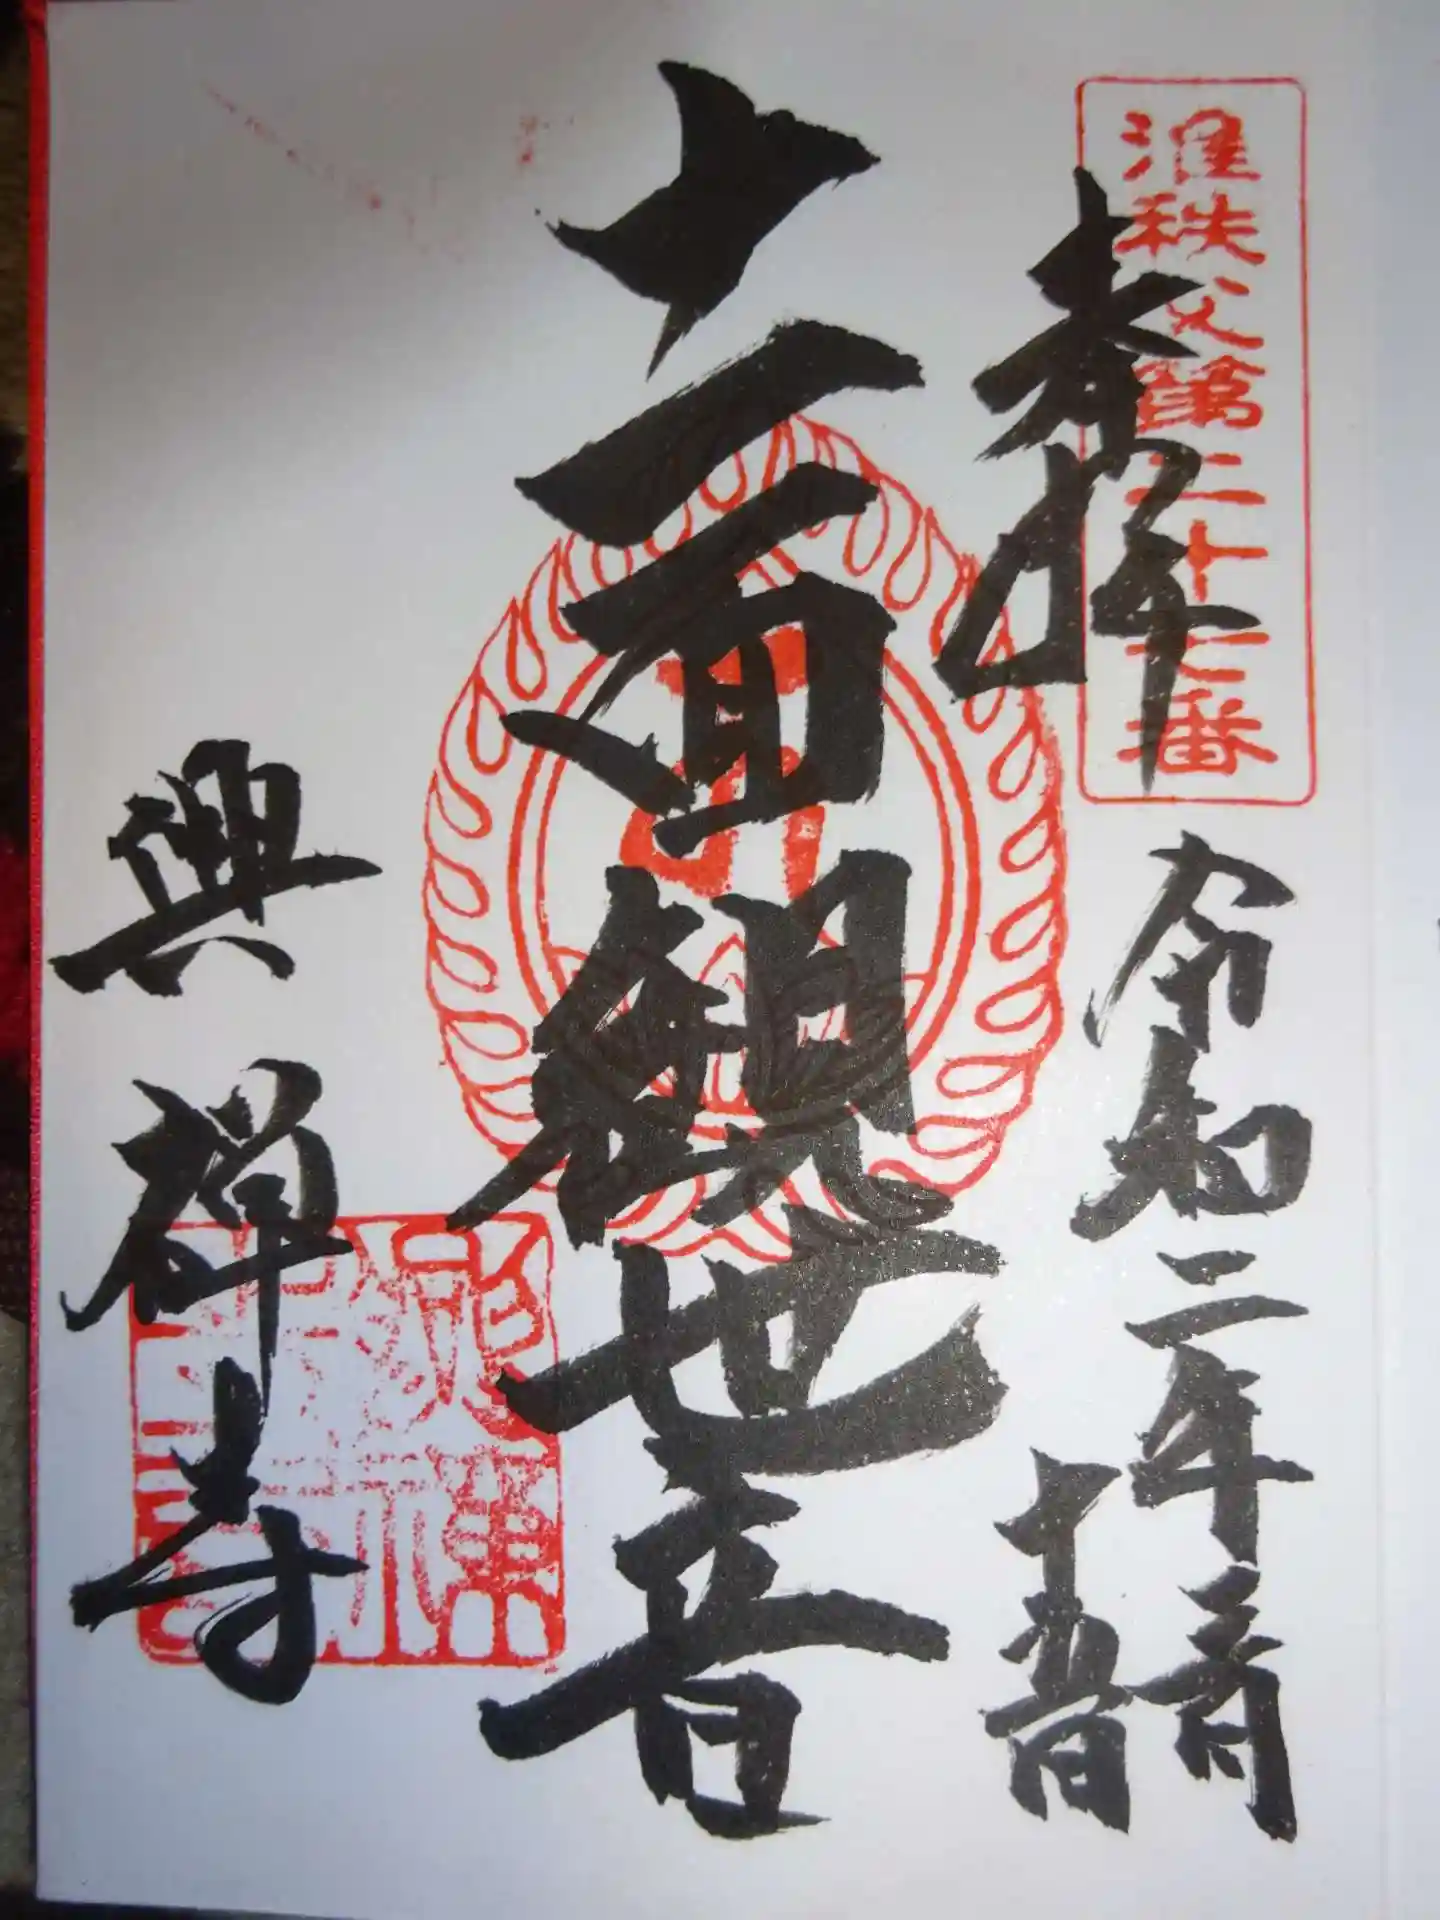 準秩父第二十七番
奉拝
令和二年二月
十五日
十一面観世音
興禅寺